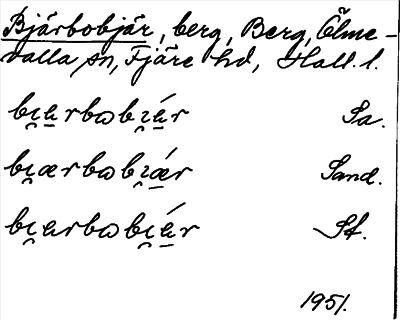 Bjärbobjär, berg, Berg, Ölme-
valla sn, Fjäre hd, Hall. l.
bi̯a̠rbωbi̯á̠r Sa.
bi̯ærbωbi̯ǽ̠r Sand.
bi̯arbωbi̯á̠r St.
1951.